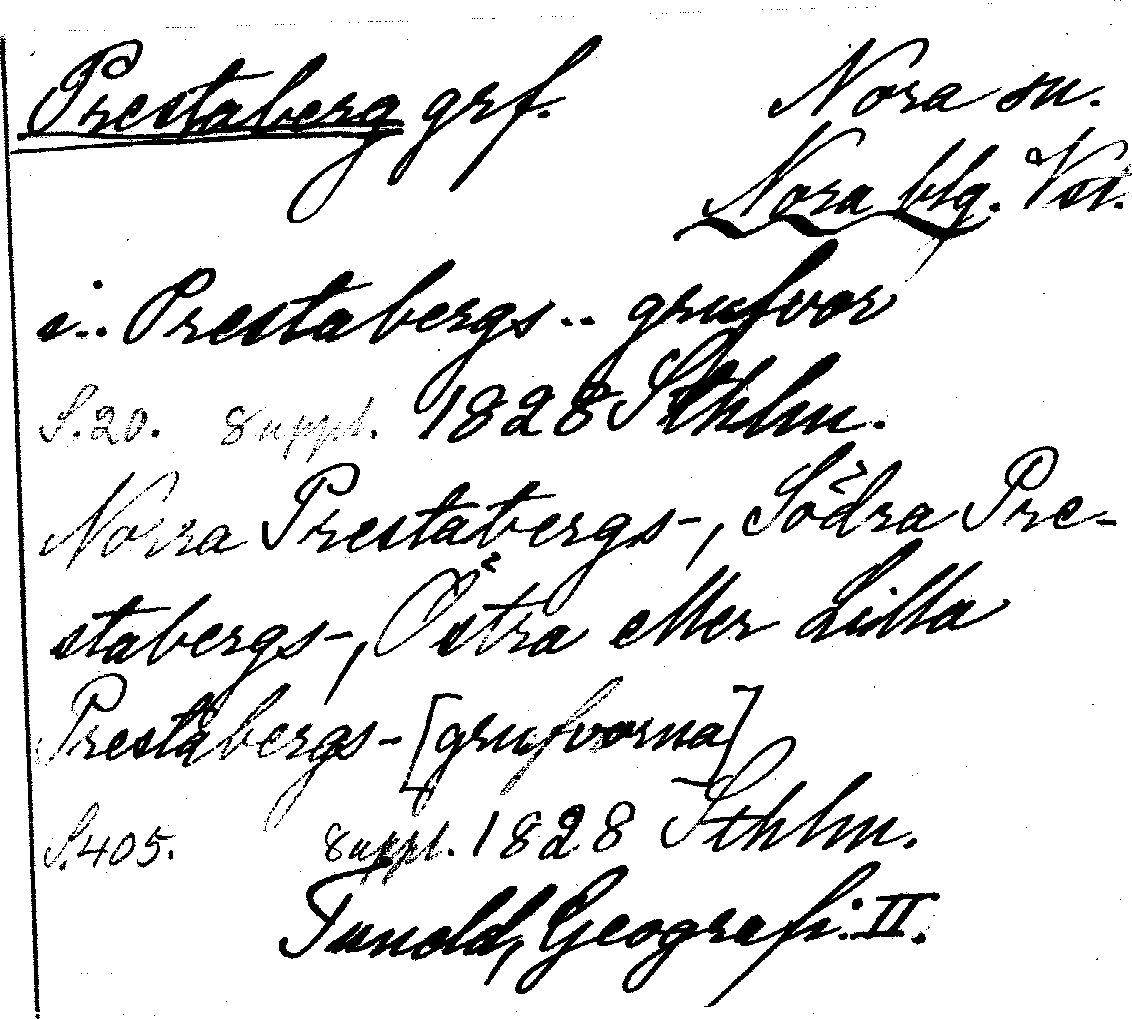 Prestaberg grf. Nora sn.
Nora blg. Vstl.
i.. Prestabergs .. grufvor
S.20. 8 uppl. 1828 Sthlm.
Norra Prestabergs-, Södra Pre-
stabergs-, Östra eller Lilla
Prestabergs-[grufvorna]
S.405. 8 uppl. 1828 Sthlm.
Tunold, Geografi. II.